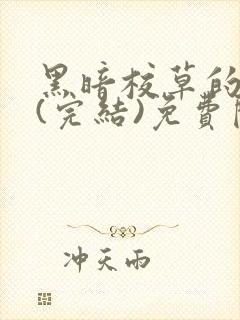 黑暗校草的
(完結)免費
冲天雨